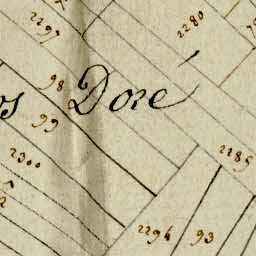 2297
2280
98
os Doré
99
2300
2285
2294 93